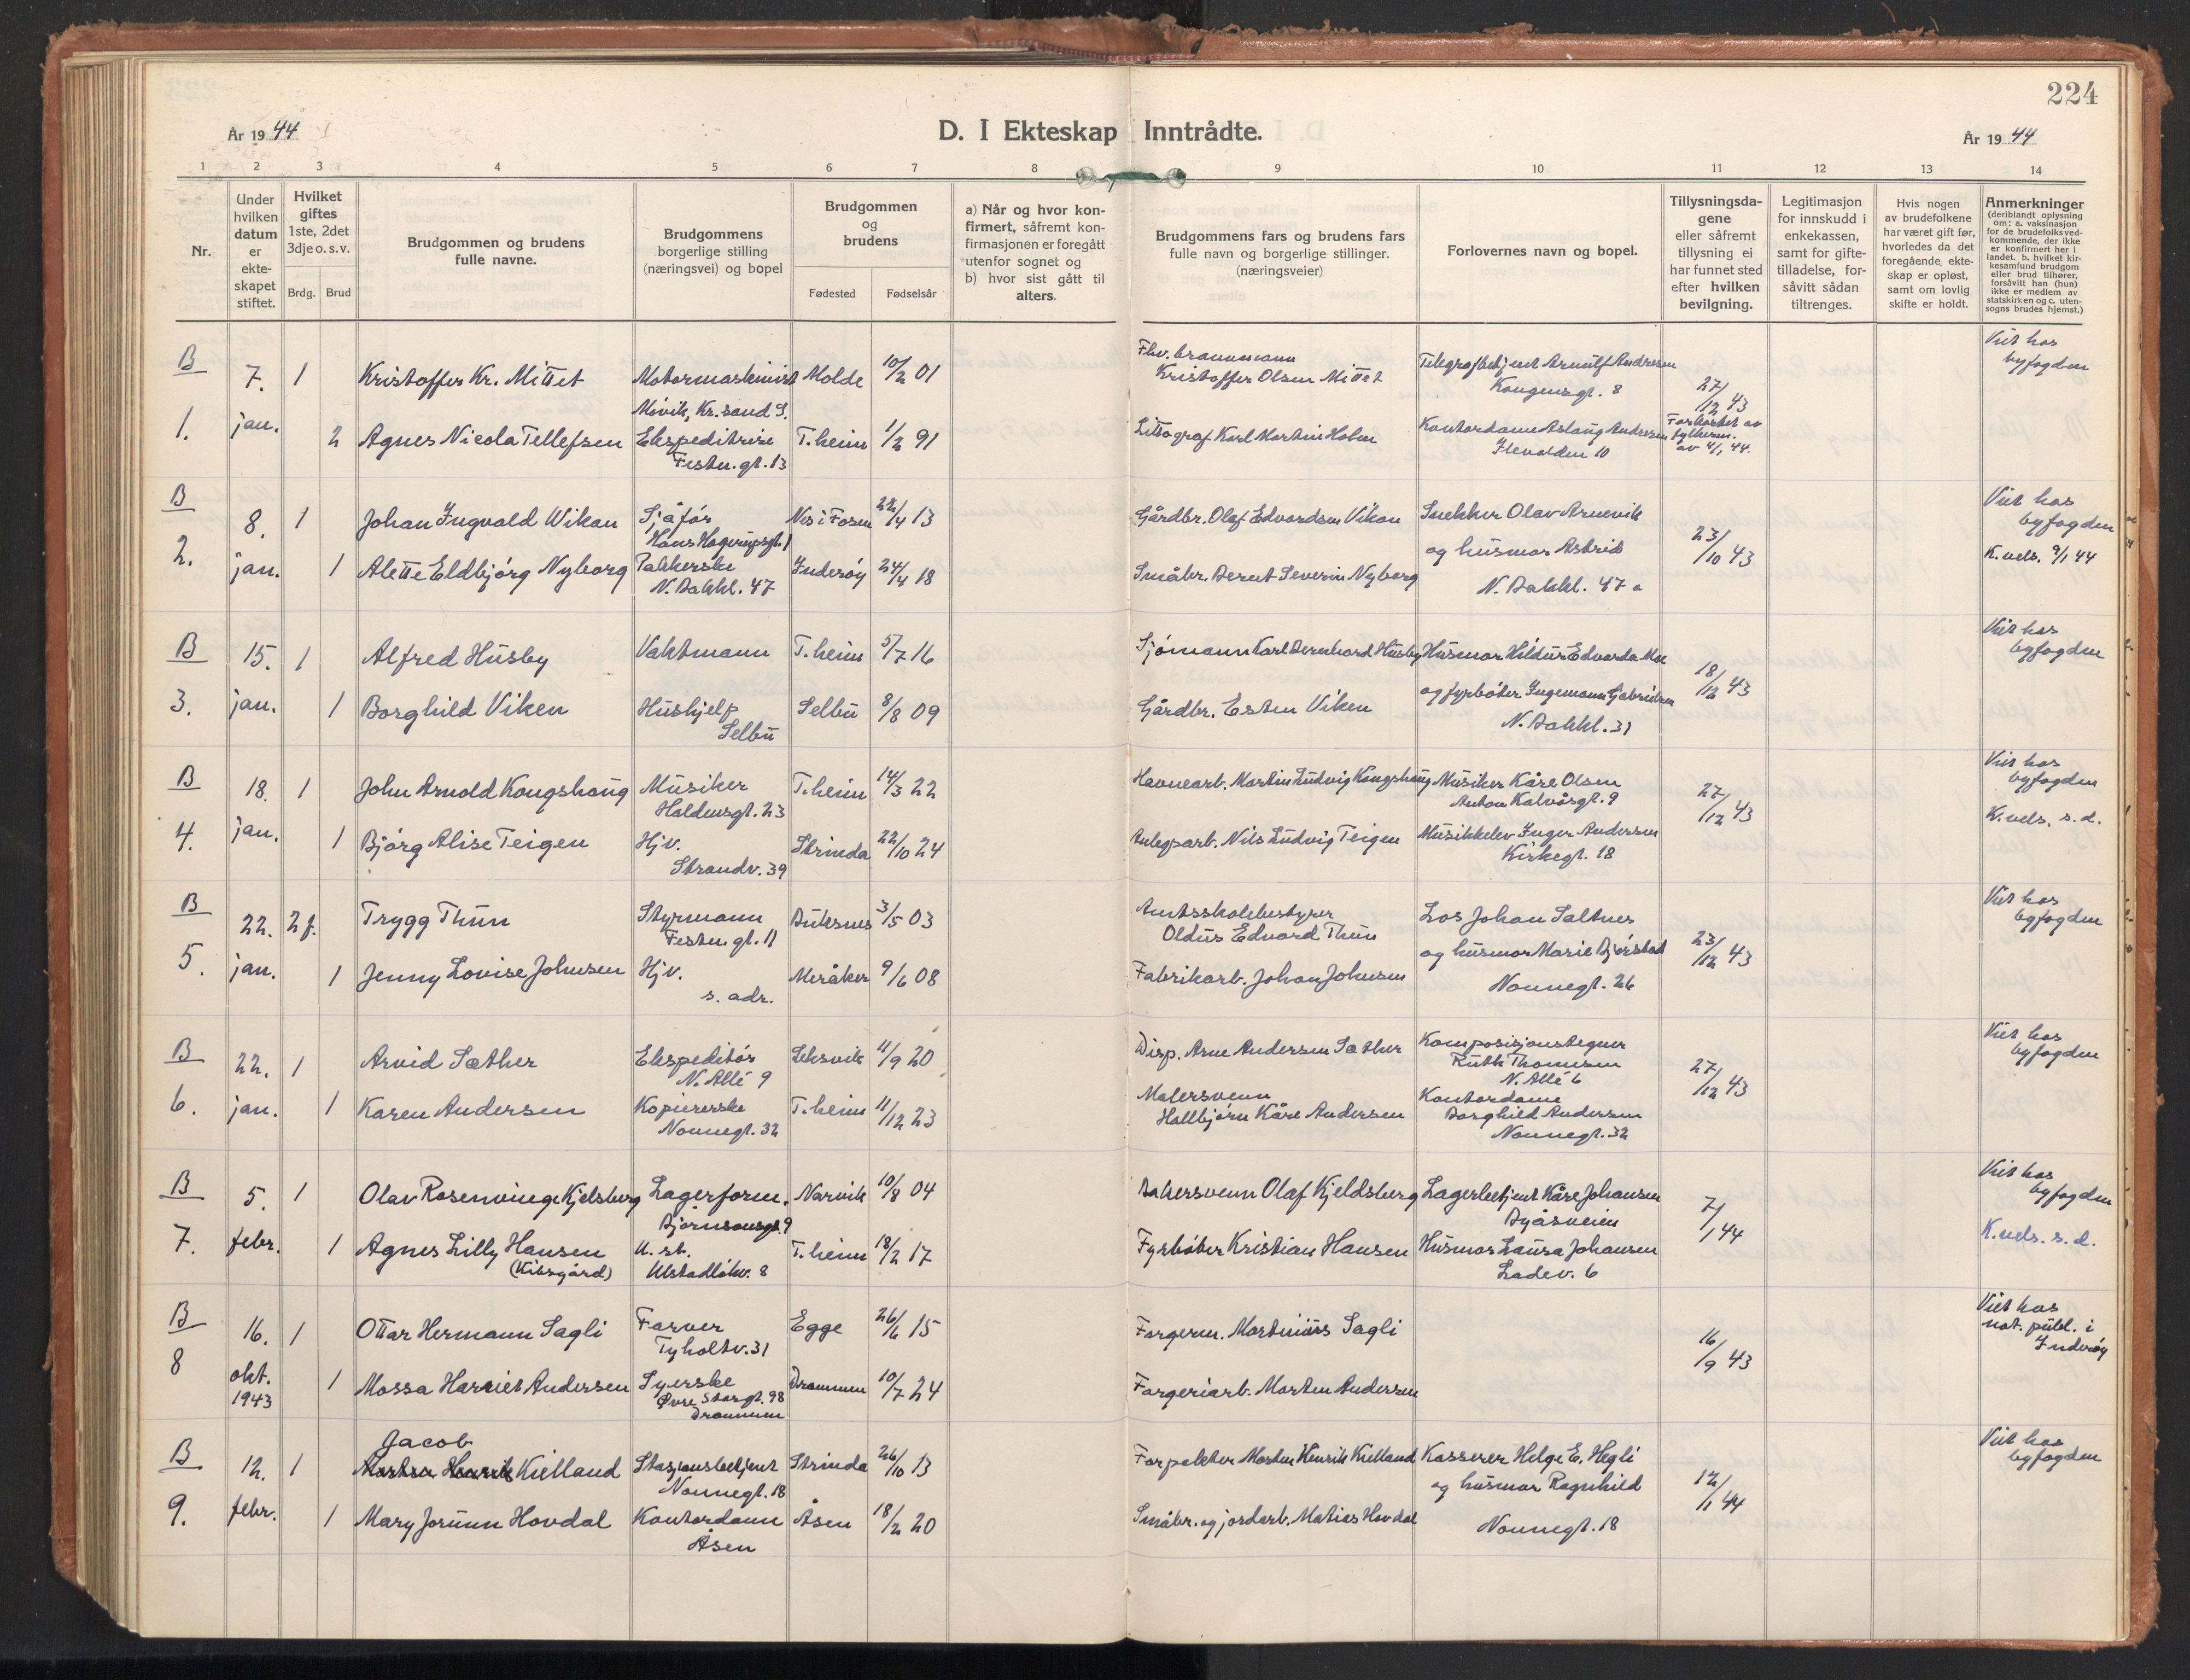 224
År 1944
D. I Ekteskap Inntrådte.
År 1944
1 2 3 4 5 6 7 8 9 10 11 12 13 14
Nr.
Under hvilken datum er ekte- skapet stiftet.
Hvilket giftes 1ste, 2det 3dje o. s. v.
Brdg. Brud
Brudgommen og brudens fulle navne.
Brudgommens borgerlige stilling (næringsvei) og bopel
Brudgommen og brudens
Fødested Fødselsår
a) Når og hvor kon- firmert, såfremt kon- firmasjonen er foregått utenfor sognet og b) hvor sist gått til alters.
Brudgommens fars og brudens fars fulle navn og borgerlige stillinger. (næringsveier)
Forlovernes navn og bopel.
Tillysningsda- gene eller såfremt tillysning ei har funnet sted efter hvilken bevilgning.
Legitimasjon for innskudd i enkekassen, samt for gifte- tilladelse, for- såvitt sådan tiltrenges.
Hvis nogen av brudefolkene har været gift før, hvorledes da det foregående ekte- skap er opløst, samt om lovlig skifte er holdt.
Anmerkninger (deriblandt oplysning om: a. vaksinasjon for de brudefolks ved- kommende, der ikke er konfirmert her i landet. b. hvilket kir- kesamfund brudgom eller brud tilhører, forsåvitt han (hun) ikke er medlem av statskirken og c. uten- sogns brudes hjemst.)
B 7. 1 Kristoffer Kr. Mittet Motormaskinist Molde 10/2 01 Fhv. brannmann Kristoffer Olsen Mittet Telegrafbetjent Arnulf Andresen Kongensgt. 8 27/12 43 Viet hos byfogden
Møvik, Kr.sand S.
1. jan. 2 Agnes Nicola Tellefsen Ekspeditrise T.heim 1/2 91 Litograf Karl Martin Holm Kontordame Aslaug Andresen Forkortet av fylkesm. av 4/1 44.
Festn. gt. 13 Ilevolden 10
B 8. 1 Johan Ingvald Wikan Sjåfør Nes i Fosen 22/4 13 Gårdbr. Olaf Edvardsen Vikan Snekker Olav Arnevik Viet hos byfogden
Hans Hagerupsgt. 1 og husmor Astrid 23/10 43
2. jan. 1 Alette Eldbjørg Nyborg Pakkerske Inderøy 24/4 18 Småbr. Bernt Severin Nyborg K. vels. 9/1 44
N. Bakkl. 47 N. Bakkl. 47 a
B 15. 1 Alfred Husby Vaktmann T.heim 5/7 16 Sjømann Karl Bernhard Husby Husmor Hildur Edvarda Moe 18/12 43 Viet hos byfogden
3. jan. 1 Borghild Viken Hushjelp Selbu 8/8 09 Gårdbr. Esten Viken og fyrbøter Ingemann Gabrielsen
Selbu N. Bakkl. 31
B 18. 1 John Arnold Kongshaug Musiker T.heim 14/3 22 Havnearb. Martin Ludvig Kongshaug Musiker Kåre Olsen Viet hos byfogden
Haldensgt. 23 Anton Kalvåsgt. 9 27/12 43
4. jan. 1 Bjørg Alise Teigen Hjv. Strinda 22/10 24 Anlegsarb. Nils Ludvig Teigen Musikkelev Inger Andersen K. vels. s. d.
Strandv. 39 Kirkegt. 18
B 22. 2 f. Trygg Thun Styrmann Buksnes 3/5 03 Amtsskolebestyrer Oldus Edvard Thun Los Johan Saltnes Viet hos byfogden
Festn. gt. 11 og husmor Marie Bjørstad 23/12 43
5. jan. 1 Jenny Lovise Johnsen Hjv. Meråker 9/6 08 Fabrikarb. Johan Johnsen
s. adr. Nonnegt. 26
B 22. 1 Arvid Sæther Ekspeditør Leksvik 11/9 20 Disp. Arne Andersen Sæther Komposisjonstegner Ruth Thomesen Viet hos byfogden
N. Allé 9 N. Allé 6 27/12 43
6. jan. 1 Karen Andersen Kopiererske T.heim 11/12 23 Malersvenn Hallbjørn Kåre Andersen Kontordame Borghild Andersen
Nonnegt. 32 Nonnegt. 32
B 5. 1 Olav Rosenvinge Kjelsberg Lagerform. Narvik 10/8 04 Bakersvenn Olaf Kjeldsberg Lagerbetjent Kåre Johansen Viet hos byfogden
Bjørnsonsgt. 9 Byåsveien 7/1 44
7. febr. 1 Agnes Lilly Hansen U. st. T.heim 18/2 17 Fyrbøter Kristian Hansen Husmor Laura Johansen K. vels. s. d.
(Vibsgård) Ulstadløkv. 8 Ladev. 6
B 16. 1 Ottar Hermann Sagli Farver Egge 26/6 15 Fargerm. Martinius Sagli Viet hos not. publ. i Inderøy
Tyholtv. 31 16/9 43
8 okt. 1943 1 Mossa Harriet Andersen Syerske Drammen 10/7 24 Fargeriarb. Morten Andersen
Øvre Storgt. 98 Drammen
B 12. 1 Jacob Kielland Stasjonsbetjent Strinda 26/10 13 Forpakter Morten Henrik Kielland Kasserer Helge E. Hegli Viet hos byfogden
Nonnegt. 18 og husmor Ragnhild 12/1 44
9. febr. 1 Mary Jorunn Hovdal Kontordame Åsen 18/2 20 Småbr. og jordarb. Matias Hovdal
Åsen Nonnegt. 18